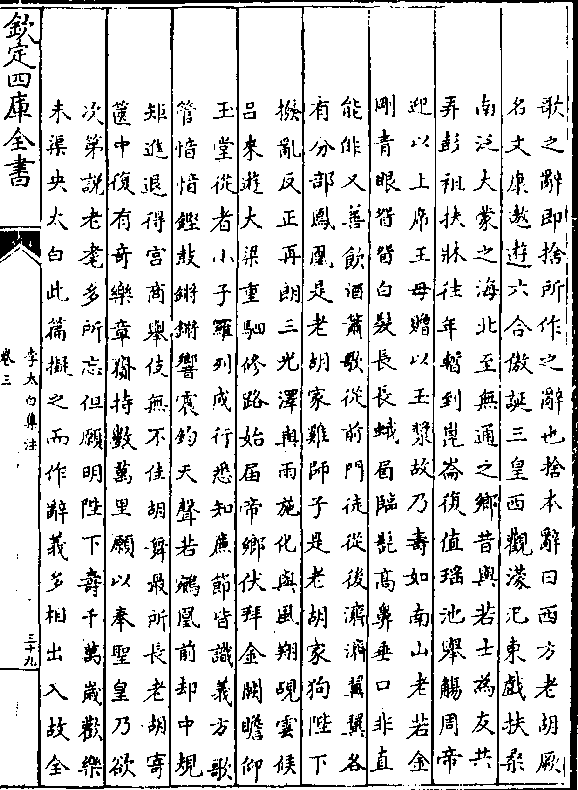 歌之辭即捨所作之辭也捨本辭曰西方老胡厥
名文康遨遊六合傲誕三皇西觀濛汜東戲扶桑
南泛大蒙之海北至無通之鄉昔與若士為友共
弄彭祖扶牀往年暫到崑崙復值瑶池舉觴周帝
迎以上席王母贈以玉漿故乃壽如南山老若金
剛青眼眢眢白髮長長蛾眉臨髭高鼻垂口非直
能俳又善飲酒簫歌從前門徒從後濟濟翼翼各
有分部鳳凰是老胡家雞師子是老胡家狗陛下
撥亂反正再朗三光澤與雨施化與風翔覘雲候
呂來遊大梁重駟修路始届帝鄉伏拜金闕瞻仰
玉堂從者小子羅列成行悉知㢘節皆識義方歌
管愔愔鏗鼓鏘鏘響震鈞天聲若鵷凰前却中規
矩進退得宫商舉伎無不佳胡舞最所長老胡寄
篋中復有奇樂章齎持數萬里願以奉聖皇乃欲
次第説老耄多所忘但願明陛下壽千萬歲歡樂
未渠央太白此篇擬之而作辭義多相出入故全
欽定四庫全書
李太白集注
卷三
三十九